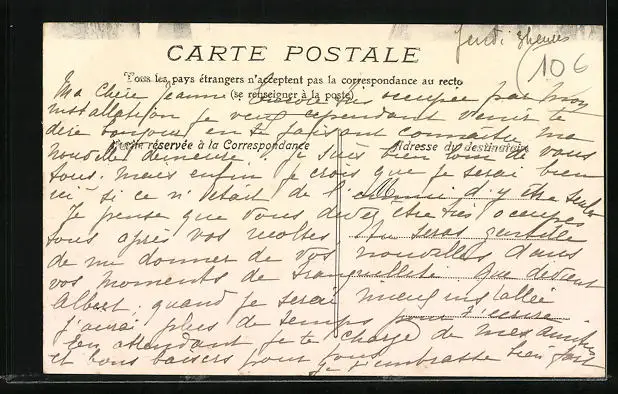 Jeudi 3 heures
106
CARTE POSTALE
Tous les pays étrangers n'acceptent pas la correspondance au recto
(se renseigner à la poste)
Ma Chère Jeanne Encore très occupée par mon
installation je veux cependant venir te
dire bonjour en te faisant connaître ma
Partie réservée à la Correspondance
Adresse du destinataire
nouvelle demeure. Je suis bien loin de vous
tous. mais enfin je crois que je serai bien
ici si ce n'était de l'ennui d'y être seule
Je pense que vous devez être très occupés
tous après vos récoltes, tu seras gentille
de me donner de vos nouvelles dans
vos moments de tranquillité. Que devient
Albert, quand je serai mieux installée
j'aurai plus de temps pour t'écrire
En attendant je te charge de mes amitiés
et bons baisers pour tous
je t'embrasse bien fort